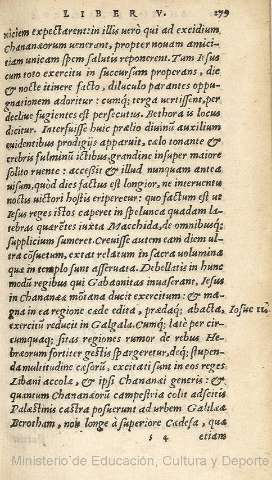 LIBER V. 179
niciem expectarent: in illis uerò qui ad excidium,
chananæorum uenerant, propter nouam amici-
tiam unicam spem salutis reponerent. Tum Iesus
cum toto exercitu in succursum properans, die
& nocte itinere facto, diluculo parantes oppu-
gnationem adoritur: cumq; terga uertissent, per
decliue fugientes est persecutus. Bethora is locus
dicitur. Interfuisse huic prælio diuinũ auxilium
euidentibus prodigijs apparuit, cælo tonante &
crebris fulminũ ictibus, grandine insuper maiore
solito ruente: accessit & illud nunquam antea
uisum, quòd dies factus est longior, ne interuentu
noctus uictori hostis eriperetur: quo factum est ut
Iesus reges ictos caperet in spelunca quadam la-
tebras quærẽtes iuxta Macchida, de omnibusq;
supplicium sumeret. Creuisse autem eam diem ul-
tra cõsuetum, extat relatum in sacra uolumina
quæ in templo sunt asseruata. Debellatis in hunc
modũ regibus qui Gabaonitas inuaserant, Iesus
in Chananææ mõtana ducit exercitum: & ma-
gna in ea regione cæde edita, prædaq́; abacta, Iosue 11.
exercitũ reducit in Galgala. Cumq; latè per cir-
cumquaq; sitas regiones rumor de rebus He-
bræorum fortiter gestis spargeretur, deq́; stupen-
da multitudine cæsorũ, excitati sunt in eos reges
Libani accolæ, & ipsi Chananæi generis: &
quantum Chananæorũ campestria colit adscitis
Palæstinis castra posuerunt ad urbem Galilææ
Berotham, non longe à superiore Cadesa, quæ
s 4 etiam
Ministerio de Educación, Cultura y Deporte